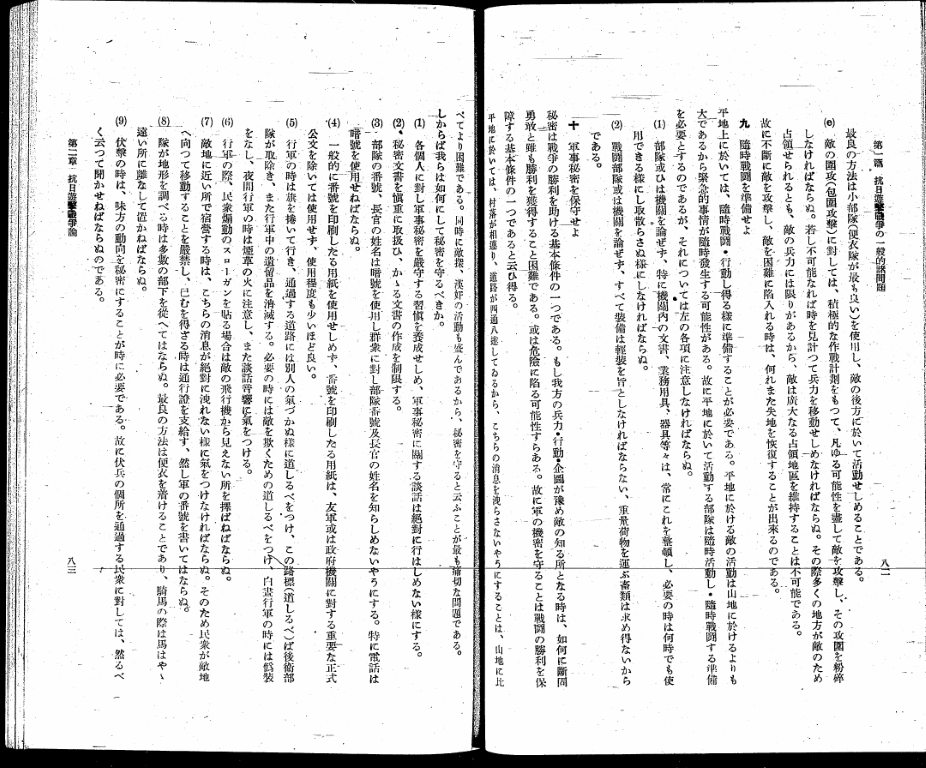 第一編 抗日遊撃戰爭の一般的諸問題
八二
最良の方法は小部隊(便衣隊が最も良い)を使用し、敵の後方に於いて活動せしめることである。
(e) 敵の圍攻(包圍攻撃)に對しては、積極的な作戰計劃をもつて、凡ゆる可能性を盡して敵を攻撃し、その攻圍を粉碎
しなければならぬ。若し不可能なれば時を見計つて兵力を移動せしめなければならぬ。その際多くの地方が敵のため
占領せられるとも、敵の兵力には限りがあるから、敵は廣大なる占領地區を維持することは不可能である。
故に不斷に敵を攻撃し、敵を困難に陷入れる時は、何れまた失地を恢復することが出來るのである。
九 隨時戰鬪を準備せよ
平地上に於いては、隨時戰鬪・行動し得る樣に準備することが必要である。平地に於ける敵の活動は山地に於けるよりも
大であるから緊急的事情が隨時發生する可能性がある。故に平地に於いて活動する部隊は隨時活動し・隨時戰鬪する準備
を必要とするのであるが、それについては左の各項に注意しなければならぬ。
(1) 部隊或ひは機關を論ぜず、特に機關內の文書、業務用具、器具等々は、常にこれを整頓し、必要の時は何時でも使
用できる樣にし取散らさぬ樣にしなければならぬ。
(2) 戰鬪部隊或は機關を論ぜず、すべて裝備は輕裝を旨としなければならない、重量荷物を運ぶ畜類は求め得ないから
である。
十 軍事秘密を保守せよ
秘密は戰爭の勝利を助ける基本條件の一つである。もし我方の兵力・行動・企圖が豫め敵の知る所となる時は、如何に斷固
勇敢と雖も勝利を獲得すること困難である。或は危險に陷る可能性すらある。故に軍の機密を守ることは戰鬪の勝利を保
障する基本條件の一つであると云ひ得る。
平地に於いては、村落が相連り、道路が四通八達してゐるから、こちらの消息を洩らさないやうにすることは、山地に比
べてより困難である。同時に敵探、漢奸の活動も盛んであるから、秘密を守ると云ふことが最も適切な問題である。
しからば我らは如何にして秘密を守るべきか。
(1) 各個人に對し軍事秘密を嚴守する習慣を養成せしめ、軍事秘密に關する談話は絕對に行はしめない樣にする。
(2) 秘密文書を愼重に取扱ひ、かゝる文書の作成を制限する。
(3) 部隊の番號、長官の姓名は暗號を使用し群衆に對し部隊番號及長官の姓名を知らしめないやうにする。特に電話は
暗號を使用せねばならぬ。
(4) 一般的に番號を印刷したる用紙を使用せしめず、番號を印刷したる用紙は、友軍或は政府機關に對する重要な正式
公文を除いては使用せず、使用程度も少いほど良い。
(5) 行軍の時は旗を捲いて行き、通過する道路には別人の氣づかぬ樣に道しるべをつけ、この路標(道しるべ)は後衛部
隊が取除き、また行軍中の遺留品を消滅する。必要の時には敵を欺くための道しるべをつけ、白晝行軍の時には僞裝
をなし、夜間行軍の時は煙草の火に注意し、また談話音響に氣をつける。
(6) 行軍の際、民衆煽動のスローガンを貼る場合は敵の飛行機から見えない所を擇ばねばならぬ。
(7) 敵地に近い所で宿營する時は、こちらの消息が絕對に洩れない樣に氣をつけなければならぬ。そのため民衆が敵地
へ向つて移動することを嚴禁し、已むを得ざる時は通行證を支給す、然し軍の番號を書いてはならぬ。
(8) 隊が地形を調べる時は多數の部下を從へてはならぬ。最良の方法は便衣を着けることであり、騎馬の際は馬はやゝ
遠い所に離なして置かねばならぬ。
(9) 伏擊の時は、味方の動向を秘密にすることが時に必要である。故に伏兵の個所を通過する民衆に對しては、然るべ
く云つて聞かせねばならぬのである。
第二章 抗日遊撃戰爭論
八三